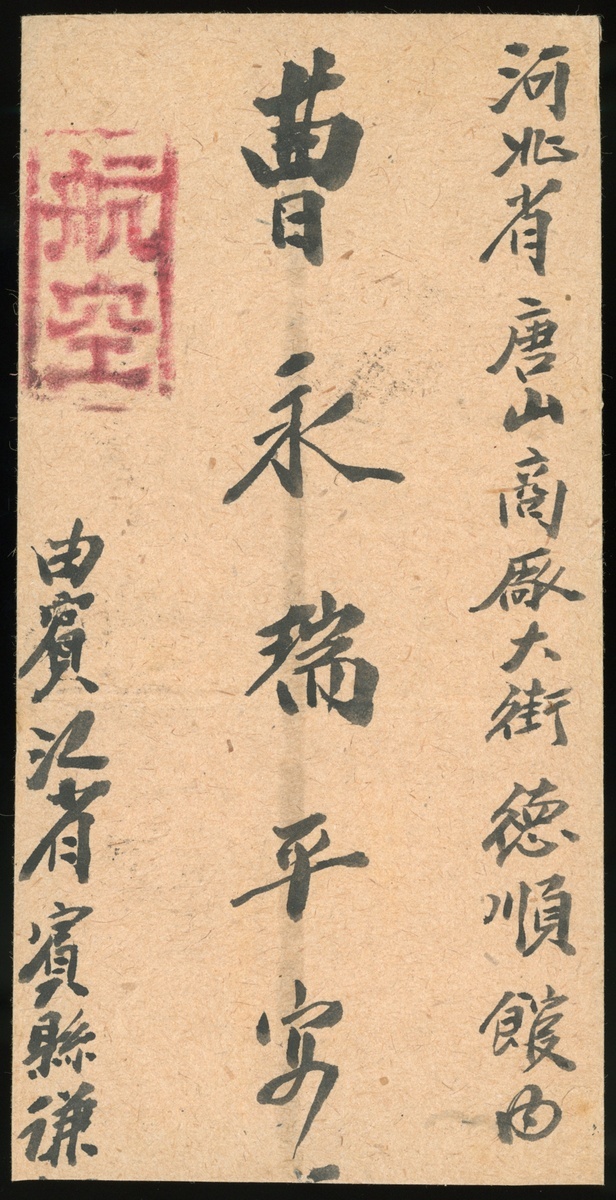 河北省唐山商厰大街德順館内
曹永瑞平安
航空
由賓江省賓縣謙